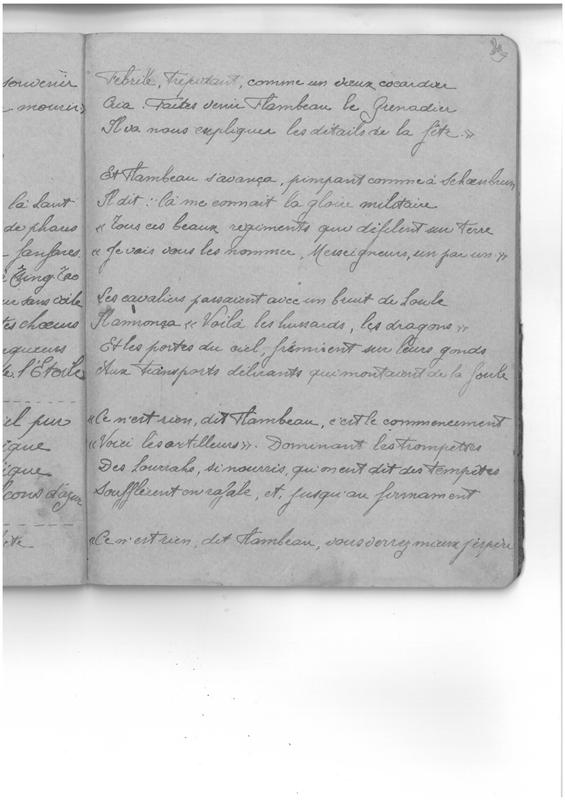 souvenir
mourir »
là haut
de phares
fanfares.
Tsing-Tao
sans voile
chœurs
l'Etoile
pur
d'azur
Febrile, trépidant, comme un vieux cocardier
Cria : Faites venir Flambeau le Grenadier
Il va nous expliquer les détails de la fête. »
Et Flambeau s'avança, pimpant comme à Schœnbrunn
Il dit : là me connait la gloire militaire
« Tous ces beaux regiments qui défilent sur terre
« Je vais vous les nommer, Messeigneurs, un par un. »
Les cavaliers passaient avec un bruit de houle
Il annonça « Voilà les hussards, les dragons »
Et les portes du ciel, frémirent sur leurs gonds
Aux transports délirants qui montaient de la foule
« Ce n'est rien, dit Flambeau, c'est le commencement
« Voici les artilleurs ». Dominant les trompettes
Des hourrahs, si nourris, qu'on eut dit des tempêtes
Soufflèrent en rafale, et, jusqu'au firmament
« Ce n'est rien, dit Flambeau, vous verrez mieux j'espère